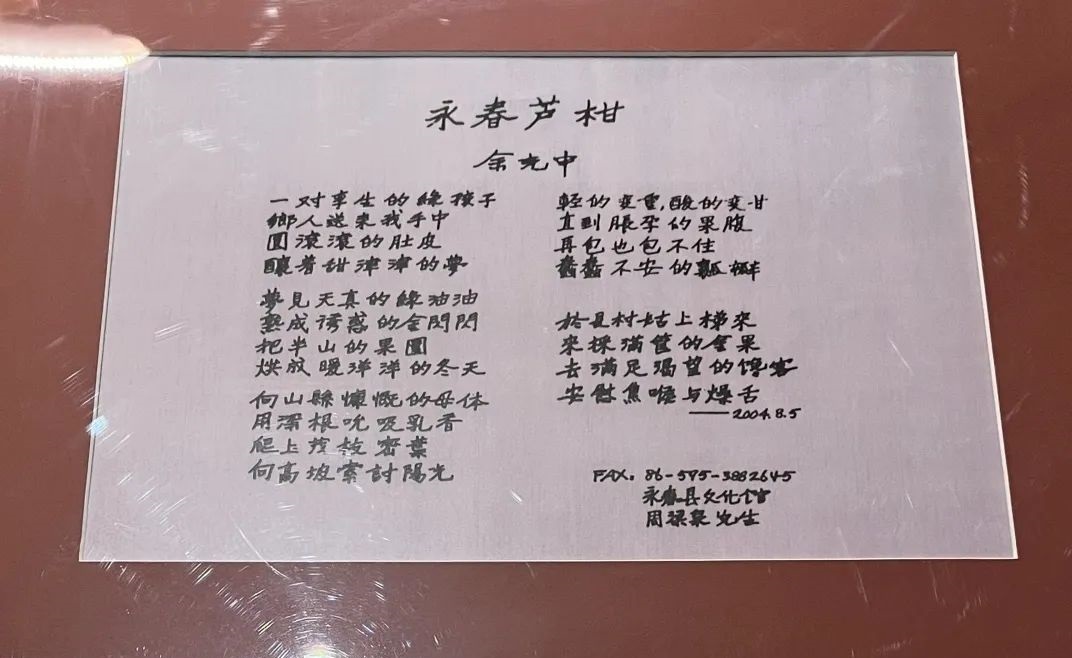 永春芦柑
余光中
一对孪生的綠孩子
鄉人送来我手中
圓滾滾的肚皮
釀着甜津津的夢
夢見天真的綠油油
熟成诱惑的金閃閃
把半山的果園
烘成暖洋洋的冬天
向山縣慷慨的母体
用深根吮吸乳香
爬上茂枝密葉
向高坡索討陽光
輕的变重,酸的变甘
直到脹孕的果腹
再包也包不住
蠢蠢不安的瓤瓣
於是村姑上梯來
來採滿筐的金果
去滿足渴望的馋客
安慰焦喉与燥舌
——2004.8.5
FAX. 86-595-3882645
永春县文化馆
周梁泉先生